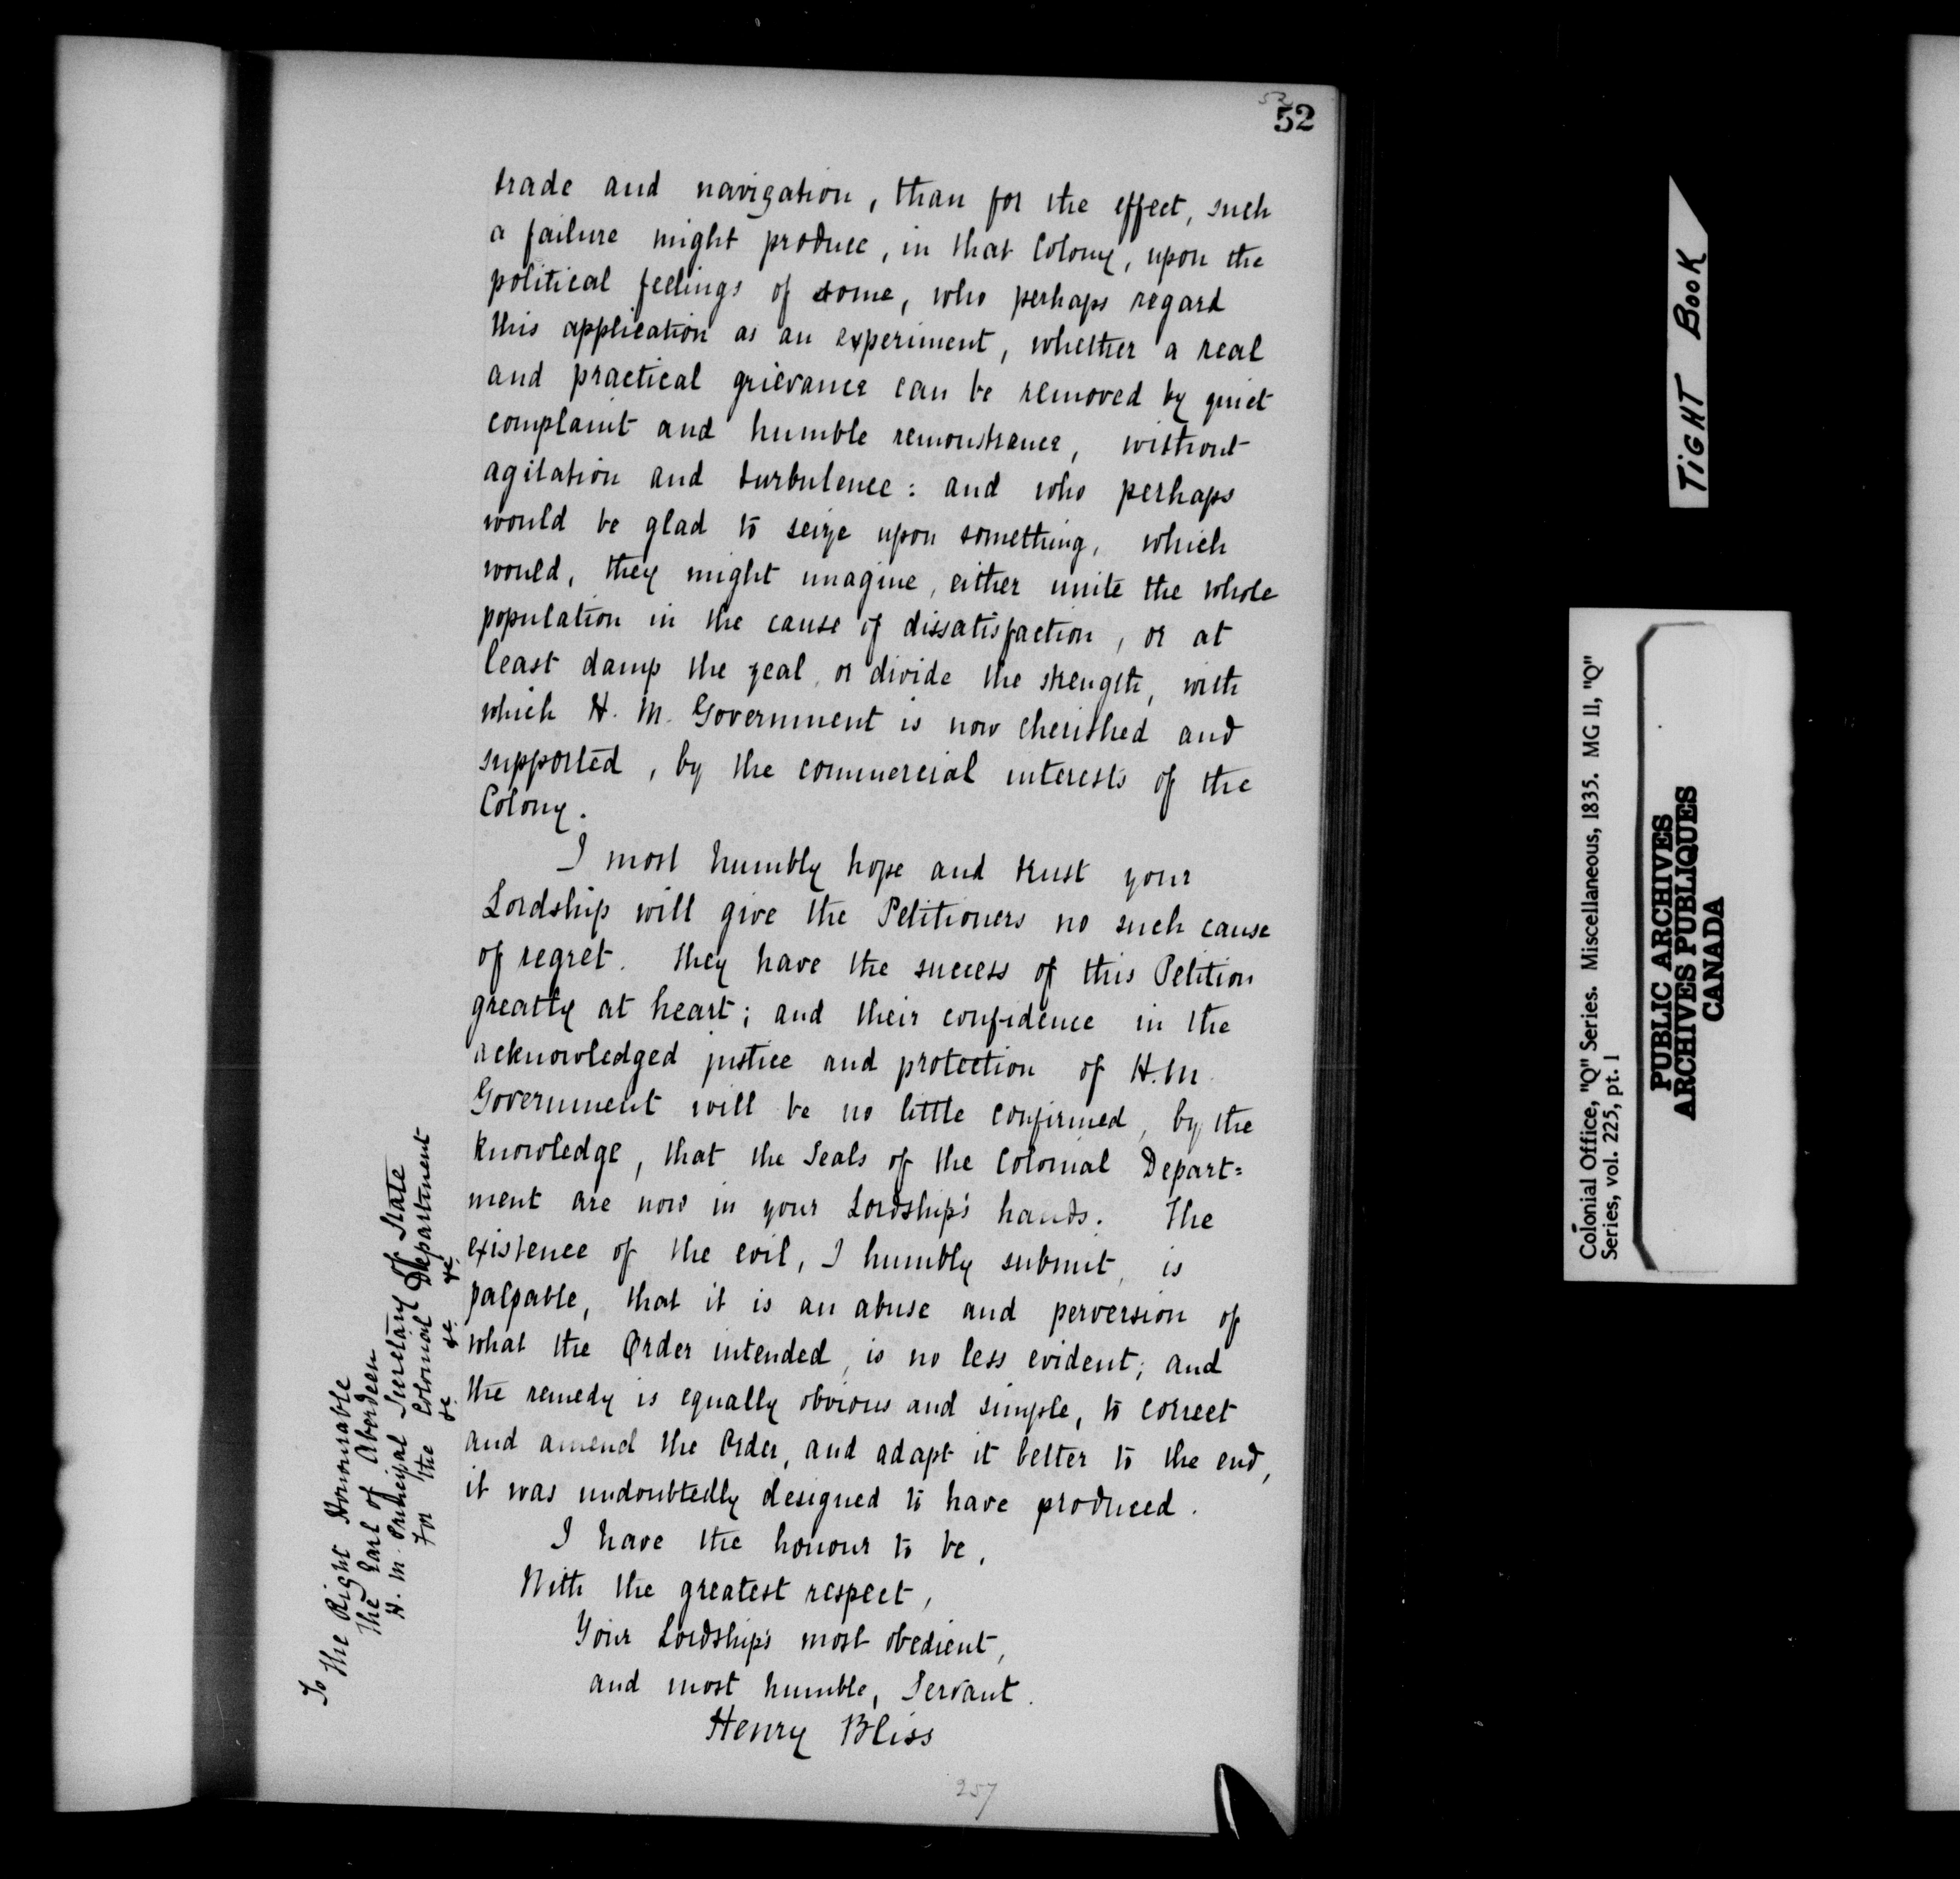 52
52
trade and navigation, than for the effect, such
a failure might produce, in that Colony, upon the
political feelings of some, who perhaps regard
this application as an experiment, whether a real
and practical grievance can be removed by quiet
complaint and humble remonstrance, without
agitation and turbulence: and who perhaps
would be glad to seize upon something, which
would, they might imagine, either unite the whole
population in the cause of dissatisfaction, or at
least damp the zeal, or divide the strength, with
which H. M. Government is now cherished and
supported, by the commercial interests of the
Colony.
I most humbly hope and trust your
Lordship will give the Petitioners no such cause
of regret. They have the success of this Petition
greatly at heart; and their confidence in the
acknowledged justice and protection of H.M.
Government will be no little confirmed, by the
knowledge, that the Seals of the Colonial Depart=
ment are now in your Lordship's hands. The
existence of the evil, I humbly submit, is
palpable, that it is an abuse and perversion of
what the Order intended, is no less evident; and
the remedy is equally obvious and simple, to correct
and amend the Order, and adapt it better to the end,
it was undoubtedly designed to have produced.
I have the honour to be,
With the greatest respect,
Your Lordship's most obedient,
and most humble, Servant.
Henry Bliss
257
To
The Right Honourable
The Earl of Aberdeen
H. M. Principal Secretary of State
For the Colonial Department
&c. &c. &c.
TIGHT BOOK
Colonial Office, "Q" Series. Miscellaneous, 1835. MG 11, "Q"
Series, vol. 225, pt. 1
PUBLIC ARCHIVES
ARCHIVES PUBLIQUES
CANADA